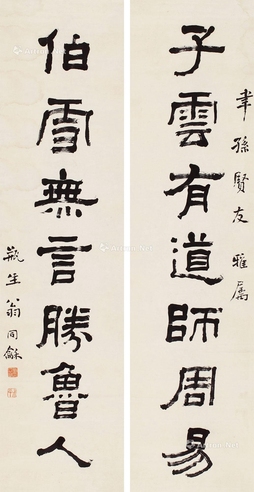 聿孫賢友雅属
子雲有道師周易
伯雪無言勝魯人
瓶生翁同龢